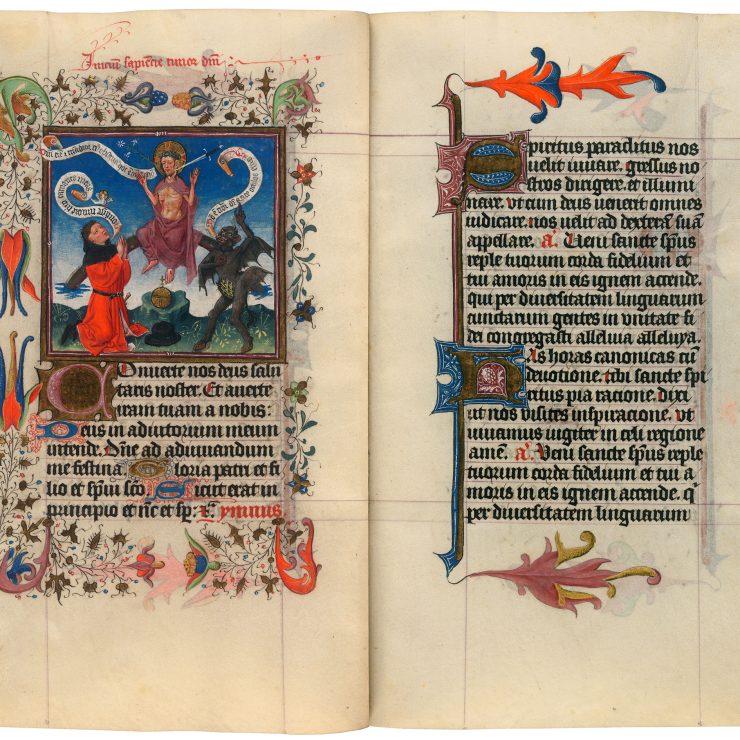 Inicium sapiencie timor dn̄i
Conuerte nos deus salu
taris noster. Et auerte
iram tuam a nobis:
Deus in adiutorium meum
intende. Dn̄e ad adiuuandum
me festina Gloria patri et fi
lio et spūi scō. Sicut erat in
principio et nc̄ et sp̄: ymnus.
Spiritus paraclitus nos
uelit iuuare. gressus no
stros dirigere. et illumi
nare. vt cum deus uenerit omnes
iudicare. nos uelit ad dexterā suā
appellare. ā. Veni sancte sp̄us
reple tuorum corda fidelium et
tui amoris in eis ignem accende.
qui per diuersitatem linguarum
cunctarum gentes in vnitate fi
dei congregasti alleluia alleluya.
Has horas canonicas cū
deuotione. tibi sancte spi
ritus pia racione. dixi
ut nos visites inspiracione. vt
viuamus iugiter in celi regione
amē. ā. Veni sancte sp̄us reple
tuorum corda fidelium et tui a
moris in eis ignem accende. q̄
per diuersitatem linguarum